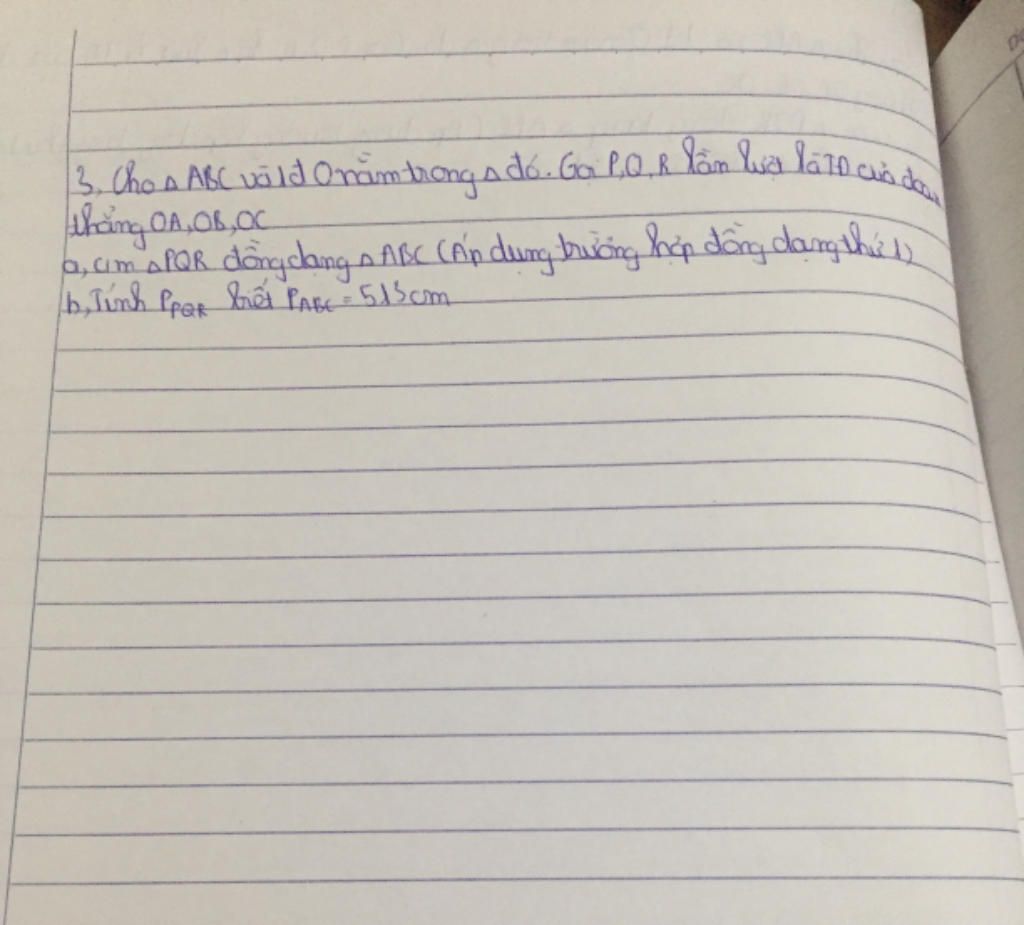 3, Cho △ ABC và 1 đ O nằm trong △ đó. Gọi P, Q, R lần lượt là TĐ của đoạn
thẳng OA, OB, OC
a, c/m △ PQR đồng dạng △ ABC (Áp dụng trường hợp đồng dạng thứ 1)
b, Tính P_PQR biết P_ABC = 513cm